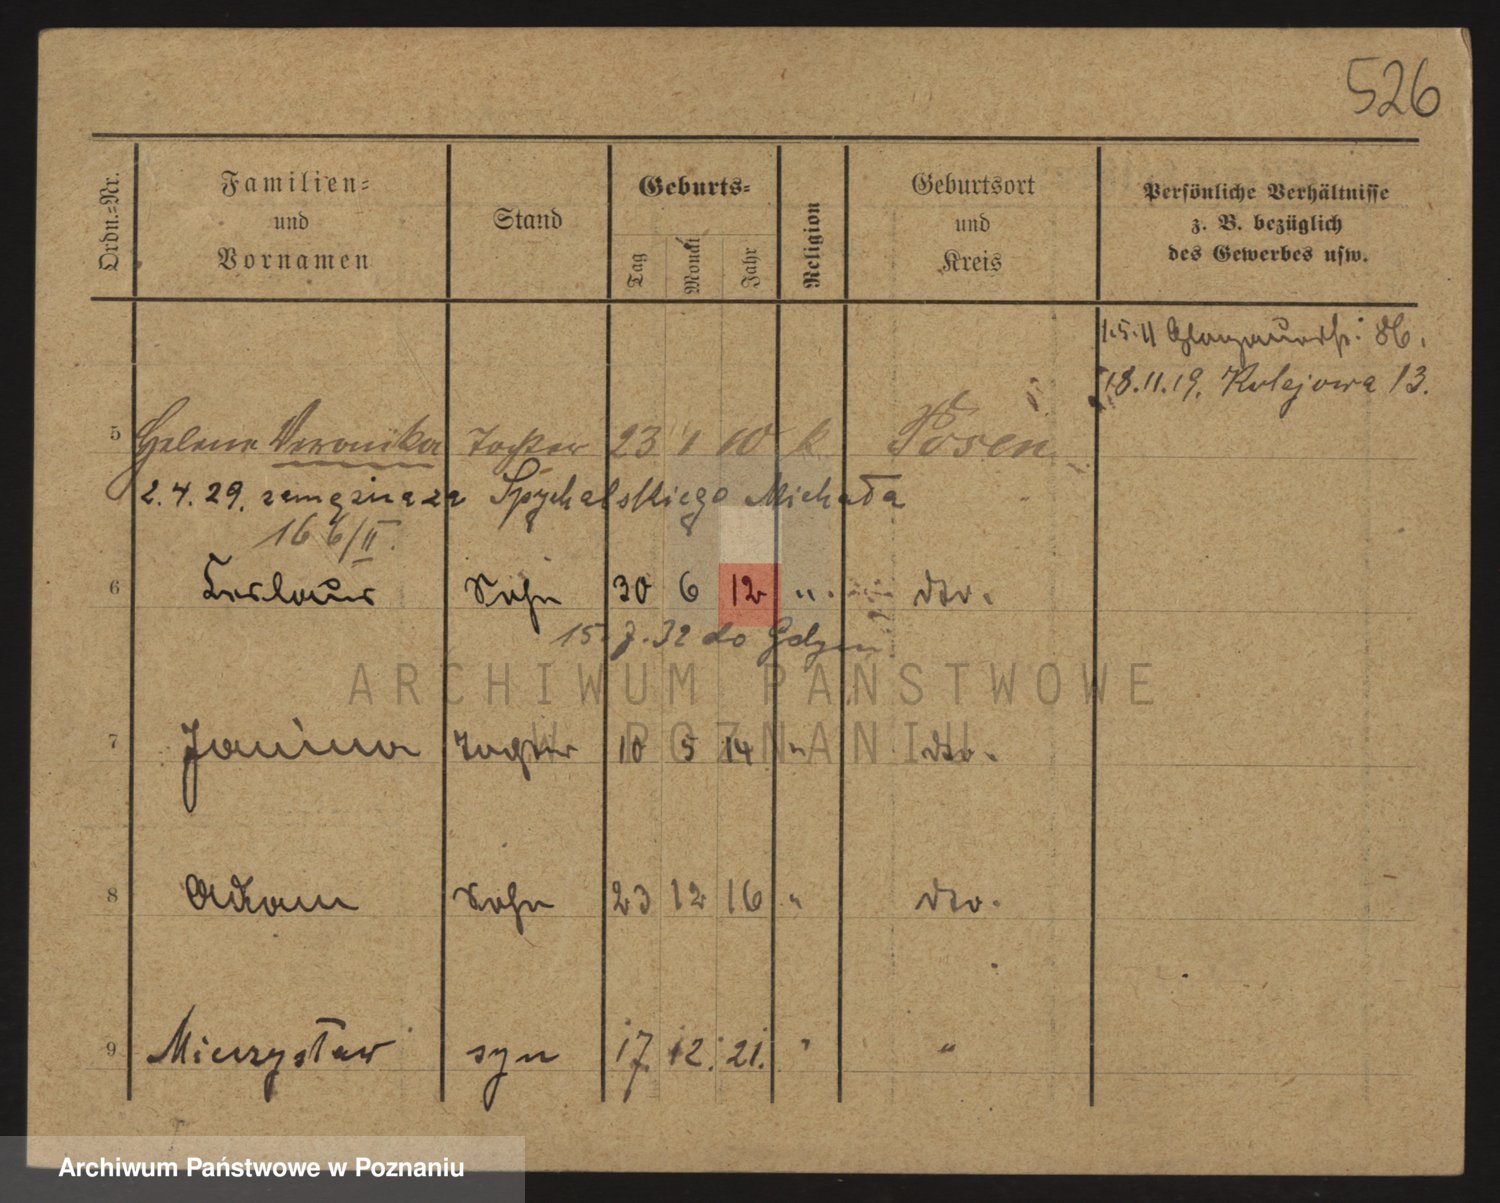 526
Ordn.=Nr.
Familien= und Vornamen
Stand
Geburts=
Tag
Monat
Jahr
Religion
Geburtsort und Kreis
Persönliche Verhältnisse z. B. bezüglich des Gewerbes usw.
1.5.11 Glogauerstr. 86.
18.11.19. Kolejowa 13.
5 Helene Veronika Tochter 23 1 10 k. Posen
2.4.29. zamężna za Spychalskiego Michała
16 6/II.
6 Sohn 30 6 12 ". dto.
15.7.32 do Gdyni
7 Janina Tochter 10 5 14 " dto.
8 Adam Sohn 23 12 16 " dto.
9 Mieczysław syn 17. 12. 21. " "
ARCHIWUM PAŃSTWOWE
W POZNANIU
Archiwum Państwowe w Poznaniu